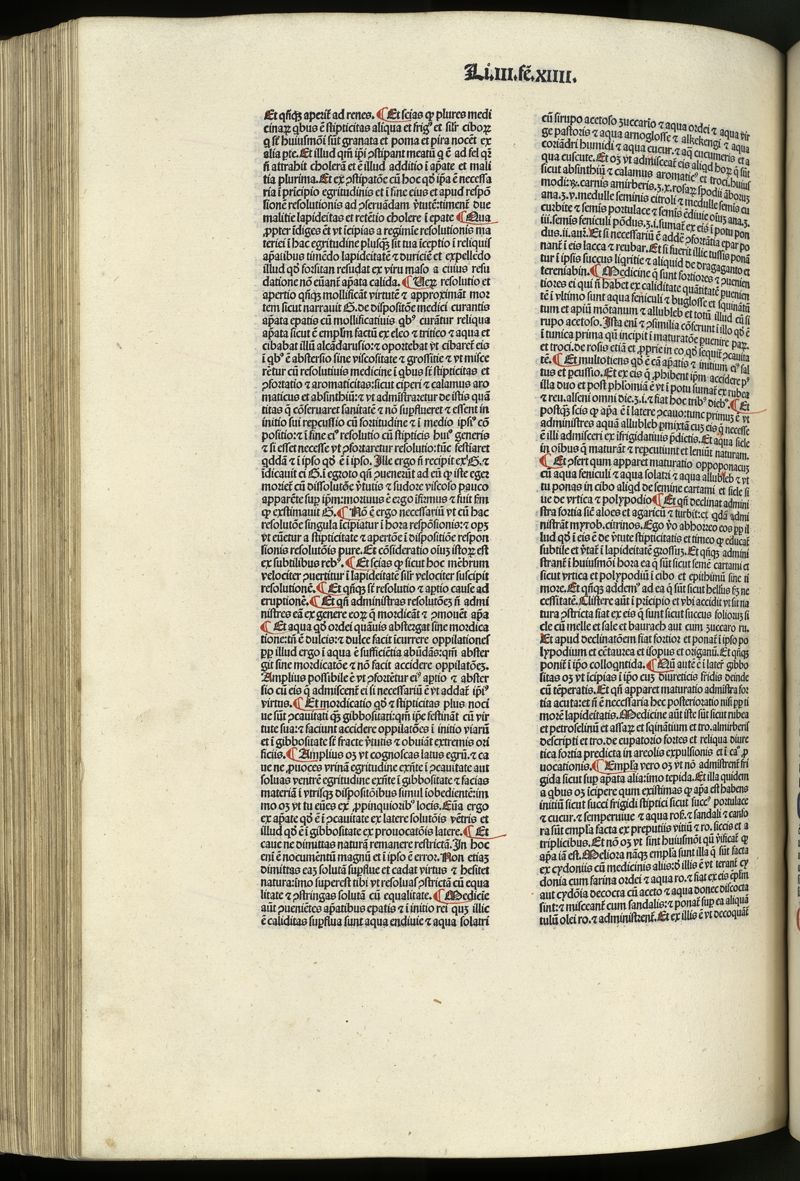 Li.III.fẽ.XIIII.
Et qñqꝫ aperit̃ ad renes. ¶ Et scias ꝙ plures medi
cinaꝝ qbus ẽ stipticitas aliqua et frigꝰ et silr̃ ciboꝝ
q st̃ huiusmõi sũt granata et poma et pira nocẽt ex
alia pte. Et illud qm̃ ipi ꝯstipant meatũ q ẽ ad fel qd̃
ñ attrahit cholerã et ẽ illud additio i apate et mali
tia plurima. Et ex ꝯstipatõe cũ hoc qd̃ ipa ẽ necessa
ria i pricipio egritudinis et i fine eius et apud respõ
sionẽ resolutionis ad ꝯseruãdam v̾tutẽ: timẽt̃ due
malitie lapideitas et retẽtio cholere i epate ¶ Qua
ꝓpter idiges ẽt vt icipias a regimie resolutionis ma
teriei i hac egritudine plusqꝫ sit tua iceptio i reliquis
apatibus timẽdo lapideitatẽ et duriciẽ et expellẽdo
illud qd̃ forsitan resudat ex viru maso a cuius resu
datione nõ euãnt apata calida. ¶ Ueꝝ resolutio et
apertio qñqꝫ mollificãt virtutẽ et approximãt mor
tem sicut narrauit G. de dispositõe medici curantis
apata epatis cũ mollificatiuis qbꝰ curãtur reliqua
apata sicut ẽ emplm̃ factũ ex oleo et tritico et aqua et
cibabat illũ alcãdarusio: et oportebat vt cibaret eis
i qbꝰ ẽ abstersio sine viscositate et grossitie et vt misce
rẽtur cũ resolutiuis medicine i qbus st̃ stipticitas et
ꝯfortatio et aromaticitas: sicut ciperi et calamus aro
maticus et absinthiũ: et vt admistraretur de istis quã
titas q cõseruaret sanitatẽ et nõ supflueret et essent in
initio sui repcussio cũ fortitudine et i medio ipsoꝰ cõ
positio: et i fine eiꝰ resolutio cũ stipticis huiꝰ generis
et si esset necesse vt ꝯfortaretur resolutio: tũc festiaret
qddã et i ipso qd̃ ẽ i ipso. Ille ergo ñ recipit exꝰ G. et
idicauit ei G. i egroto qñ ꝯuenerũt ad eũ ꝙ iste eger
moriet̃ cũ dissolutõe v̾tutis et sudore viscoso pauco
apparẽte sup ipm: mortuus ẽ ergo ifirmus et fuit sm̃
ꝙ existimauit G. ¶ Nõ ẽ ergo necessariũ vt cũ hac
resolutõne singula icipiatur i hora respõsionis: et opꝫ
vt euẽtur a stipticitate et apertõe i dispositõe respon
sionis resolutõis pure. Et cõsideratio oiuꝫ istoꝝ est
ex subtilibus rebꝰ. ¶ Et scias ꝙ sicut hoc mẽbrum
velociter ꝯuertitur i lapideitatẽ silr̃ velociter suscipit
resolutionẽ. ¶ Et qñqꝫ sit resolutio et aptio cause ad
eruptionẽ. ¶ Et qñ administras resolutõeꝫ ñ admi
nistres eã ex genere eoꝝ q mordicãt et ꝯmouẽt apa
¶ Et aqua qd̃ ordei quãuis abstergat sine mordica
tione: tñ ẽ dulcis: et dulce facit icurrere oppilationes
pp illud ergo i aqua ẽ sufficiẽtia abũdãs: qm̃ abster
git sine mordicatõe et nõ facit accidere oppilatõeꝫ.
Amplius possibile ẽ vt ꝯfortẽtur eiꝰ aptio et abster
sio cũ eis q admiscent̃ ei si necessariũ ẽ vt addat̃ ipiꝰ
virtus. ¶ Et mordicatio qd̃ et stipticitas plus noci
ue sũt ꝯcauitati qꝫ gibbositati: qm̃ ipe festinãt cũ vir
tute sua: et faciunt accidere oppilatões i initio viarũ
et i gibbositate st̃ fracte v̾tutis et obuiãt extremis ori
ficiis. ¶ Amplius oꝫ vt cognoscas latus egrũ. et ca
ue ne ꝓuoces vrinã egritudine exñte i ꝯcauitate aut
soluas ventrẽ egritudine exñte i gibbositate et facias
materiã i vtrisqꝫ dispositõibus simul iobedientẽ: im
mo oꝫ vt tu euẽes ex ꝓpinquioribꝰ locis. Euã ergo
ex apate qd̃ ẽ i ꝯcauitate ex latere solutõis vẽtris et
illud qd̃ ẽ i gibbositate ex prouocatõis latere. ¶ Et
caue ne dimittas naturã remanere restrictã. In hoc
eni ẽ nocumẽtũ magnũ et i ipso ẽ error. Non etiaꝫ
dimittas eaꝫ solutã supflue et cadat virtus et hesitet
natura: imo superest tibi vt resoluas ꝯstrictã cũ equa
litate et ꝯstringas solutã cũ equalitate. ¶ Medicie
aũt ꝯueniẽtes apatibus epatis et i initio rei quꝫ illic
ẽ caliditas supflua sunt aqua endiuie et aqua solatri
cũ sirupo acetoso zuccario et aqua ordei et aqua vir
ge pastoris et aqua arnoglosse et alkekengi et aqua
coriãdri humidi et aqua cucur. et aq̃ cucumeris et a
qua cuscute. Et oꝫ vt admisceat̃ eis aliqd hoꝝ q sũt
sicut absinthiũ et calamus aromaticꝰ et troci. huius
modi: ꝝ. carnis amirberis. ʒ.x. rosaꝝ spodii ãborũ
ana. ʒ.v. medulle seminis citroli et medulle semis cu
curbite et semis portulace et semis ẽdiuie oiuꝫ ana. ʒ.
iii. semis feniculi põdus. ʒ.i. sumat̃ ex eis i potu pon
dus.ii.aur̃. Et si necessariũ ẽ addẽ ꝯfortãtia epar po
nant̃ i eis lacca et reubar. Et si fuerit illic tussis ponã
tur i ipsis succus liqritie et aliquid de dragaganto et
tereniabin. ¶ Medicine q sunt fortiores et ꝯuenien
tiores ei qui ñ habet ex caliditate quãtitatẽ puenien
tẽ i vltimo sunt aqua feniculi et buglosse et squinãtũ
tum et apiũ mõtanum et allubleb et totũ illud cũ si
rupo acetoso. Ista eni et ꝯsimilia cõferunt i illo qd̃ ẽ
i tunica prima qui incipit i maturatõne puenire paꝝ.
et troci. de rosis etiã et ꝓprie in eo qd̃ sequit̃ ꝯcauita
tẽ. ¶ Et multotiens qd̃ ẽ cã apatis et initium eiꝰ sal
tus et pcussio. Et ex eis q ꝓhibent ipm accidere pꝰ
illa duo et post phlomiã ẽ vt i potu sumat̃ ex rubea
et reu. alseni omni die. ʒ.i. et fiat hoc tribꝰ diebꝰ. ¶ Et
postqꝫ scis ꝙ apa ẽ i latere ꝯcauo: tunc primuꝫ ẽ vt
administres aquã allubleb ꝑmixtã cuꝫ eis q necesse
ẽ illi admisceri ex ifrigidatiuis p̃dictis. Et aqua sicle
in oibus q maturãt et repcutiunt et leniũt naturam.
¶ Et ꝯfert qum apparet maturatio oppoponacus
cũ aqua feniculi et aqua solatri et aqua allubleb et vt
tu ponas in cibo aliqd de semine cartami et sicle si
ue de vrtica et polypodio ¶ Et qñ declinat admini
stra fortia siẽ aloes et agaricũ et turbit: et qdã admi
nistrãt myrob. citrinos. Ego v̾o abhorreo eos pp il
lud qd̃ i eis ẽ de v̾tute stipticitatis et timeo ꝙ educat̃
subtile et v̾tat̃ i lapideitatẽ grossuꝫ. Et qñqꝫ admini
strant̃ i huiusmõi hora ea q sũt sicut semẽ cartami et
sicut vrtica et polypodiũ i cibo et epithimũ sine ti
more. Et qñqꝫ addemꝰ ad ea q sũt sicut hellusꝫ sm̃ ne
cessitatẽ. Clistere aũt i pricipio et vbi accidit vt sit na
tura ꝯstricta fiat ex eis q sunt sicut succus folioruꝫ si
cle cũ melle et sale et baurach aut cum zuccaro ru.
Et apud declinatõem fiat fortior et ponat̃ i ipso po
lypodium et cẽtaurea et isopus et origanũ. Et qñqꝫ
ponit̃ i ipo colloqntida. ¶ Nũ autẽ ẽ i later̃ gibbo
sitas oꝫ vt icipias i ipo cuꝫ diureticis fridis deinde
cũ tẽperatis. Et qñ apparet maturatio admistra for
tia acuta: et ñ ẽ necessaria hec posterioratio nisi pp ti
morẽ lapideitatis. Medicine aũt iste sũt sicut rubea
et petroselinũ et assaꝝ et sqinãtum et tro. almirberis
descripti et tro. de eupatorio fortes et reliqua diure
tica fortia predicta in areolis expulsionis et i cãꝰ ꝓ
uocationis. ¶ Empla vero oꝫ vt nõ admistrẽt̃ fri
gida sicut sup apata alia: imo tepida. Et illa quidem
a qbus oꝫ icipere qum existimas ꝙ apa est habens
initiũ sicut succi frigidi stiptici sicut succꝰ portulace
et cucur. et semperuiue et aqua ros̃. et sandali et canfo
ra sũt empla facta ex preputiis vitiũ et ro. siccis et a
triplicibus. Et nõ oꝫ vt sint huiusmõi qũ v̾ificat̃ ꝙ
apa iã est. Meliora nãqꝫ empla sunt illa q sũt facta
ex cydoniis cũ medicinis aliis: qd̃ illis ẽ vt terant̃ cy
donia cum farina ordei et aqua ro. et fiat ex eis eplm̃
aut cydõia decocta cũ aceto et aqua donec discocta
sint: et misceant̃ cum sandalis: et ponat̃ sup ea aliquã
tulũ olei ro. et administrent̃. Et ex illis ẽ vt decoquãt̃